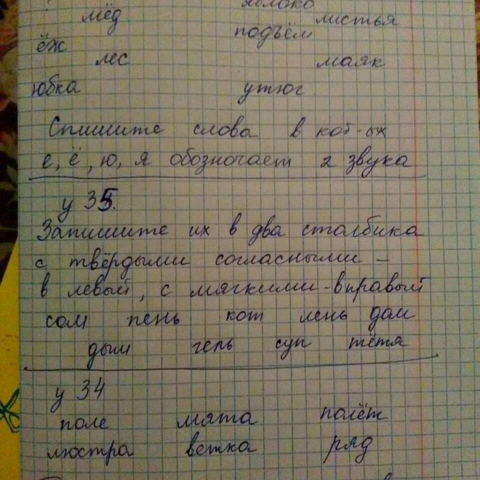 яблоко
мёд листья
подъём
ёж
лес маяк
юбка утюг
Спишите слова в кот-ых
е, ё, ю, я обозночает 2 звука
у 35.
Запишите их в два столбика
с твёрдыми согласными –
в левый, с мягкими - вправый
сом пень кот лень дом
дым гель суп тётя
у 34
поле мята полёт
люстра ветка ряд